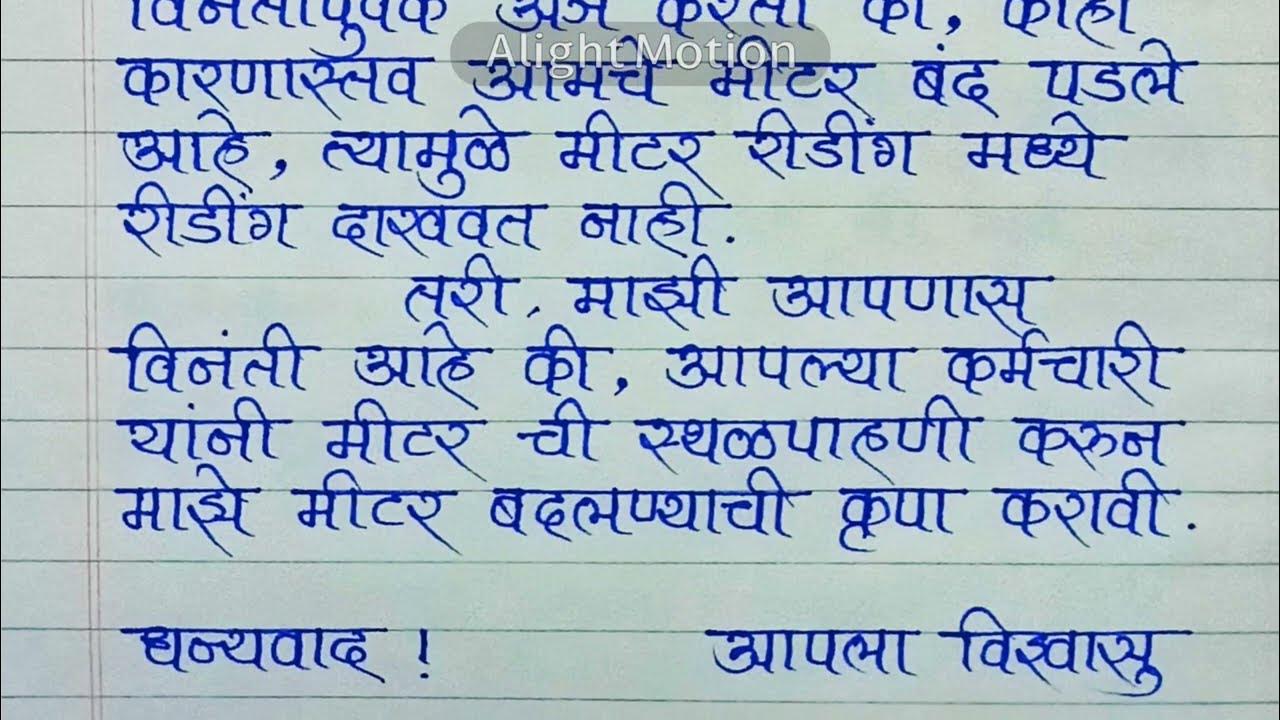 विनंतीपुर्वक अर्ज करतो की, काही
Alight Motion
कारणास्तव आमचे मीटर बंद पडले
आहे, त्यामुळे मीटर रीडींग मध्ये
रीडींग दाखवत नाही.
तरी, माझी आपणास
विनंती आहे की, आपल्या कर्मचारी
यांनी मीटर ची स्थळपाहणी करुन
माझे मीटर बदलण्याची कृपा करावी.
धन्यवाद ! आपला विश्वासु